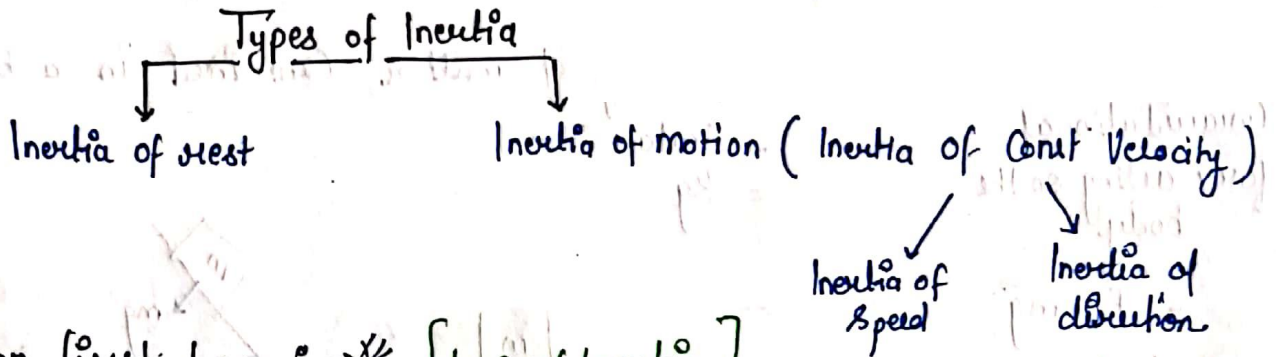 Types of Inertia
Inertia of rest
Inertia of motion ( Inertia of Const Velocity )
Inertia of speed
Inertia of direction